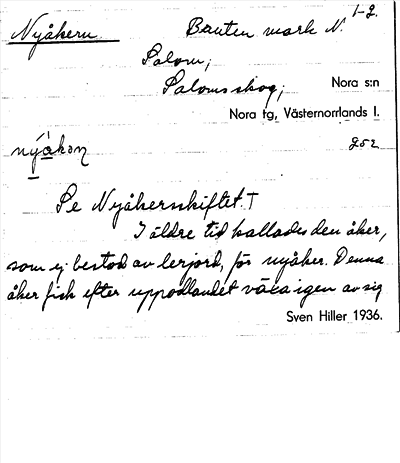 1-2.
Nyåkern Bruten mark N.
Salom;
Salomsskog; Nora s:n
Nora tg, Västernorrlands l.
252
Se Nyåkersskiftet. †
I äldre tid kallades den åker,
som ej bestod av lerjord, för nyåker. Denna
åker fick efter uppodlandet växa igen av sig
Sven Hiller 1936.